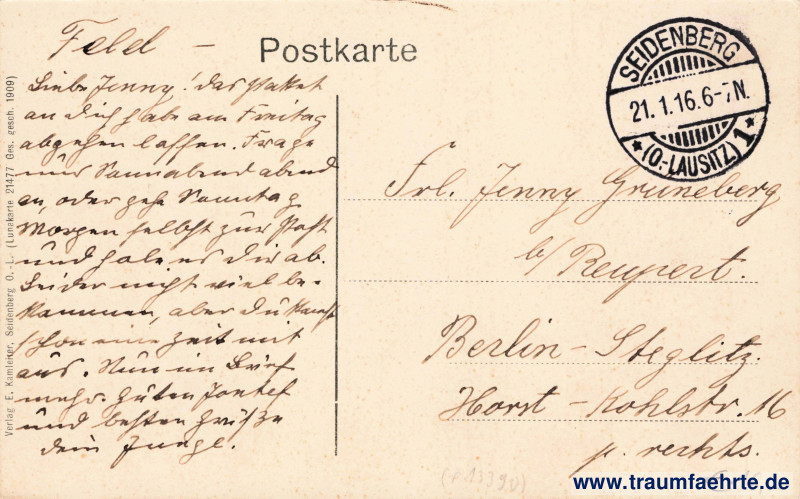 Feld – Postkarte
Liebe Jenny! das Paket
an dich habe am Freitag
abgehen lassen. Frage
nur Sonnabend abend
an, oder gehe Sonntag
Morgen selbst zur Post
und hole es dir ab.
Leider nicht viel be-
kommen, aber du kannst
schon eine Zeit mit
aus. Nun im Brief
mehr. Guten Jontef
und besten Grüße
dein Junge.
SEIDENBERG
21.1.16.6-7N.
* (O.-LAUSITZ) 1 *
Frl. Jenny Gruneberg
b/ Reupert.
Berlin-Steglitz.
Horst-Kohlstr. 16
p. rechts.
Verlag E. Kamleiter, Seidenberg O.-L. (Lunakarte 21477 Ges. gesch. 1909)
www.traumfaehrte.de